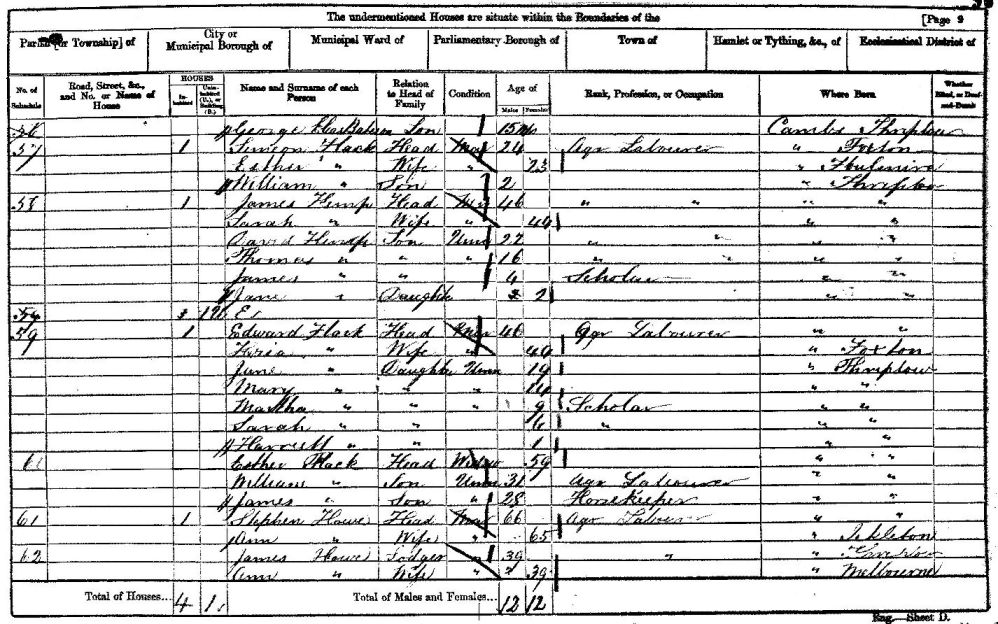 The undermentioned Houses are situate within the Boundaries of the
[Page 9
Parish [or Township] of
City or Municipal Borough of
Municipal Ward of
Parliamentary Borough of
Town of
Hamlet or Tything, &c., of
Ecclesiastical District of
No. of Schedule
Road, Street, &c., and No. or Name of House
HOUSES
In-habited
Unin-habited (U.), or Building (B.)
Name and Surname of each Person
Relation to Head of Family
Condition
Age of
Males
Females
Rank, Profession, or Occupation
Where Born
Whether Blind, or Deaf-and-Dumb
56 George Son 15 Cambs Thriplow
57 1 Simeon Flack Head Mar 24 Agr Labourer " Foxton
Esther " Wife " 23 "
William " Son 2 " Thriplow
58 1 James Hemp Head Mar 46 " " " "
Sarah " Wife " 49 " "
David Hemp Son Unm 22 " " " "
Thomas " " " 16 " " " "
James " " 4 Scholar " "
Jane " Daughter 2 " "
59 1 Edward Flack Head Mar 46 Agr Labourer " "
" Wife " 44 " Foxton
Jane " Daughter Unm 19 " Thriplow
Mary " " " 14 " "
Martha " " " 9 Scholar " "
Sarah " " 6 " " "
Harriett " " 1 " "
Esther Flack Head Widow 59 " "
William " Son Unm 31 Agr Labourer " "
James " Son " 28 Horsekeeper " "
61 1 Stephen Howe Head Mar 66 Agr Labourer " "
Ann " Wife " 65 " Ickleton
62 James Howe Lodger " 39 " "
Ann " Wife " 39 " Melbourne
Total of Houses... 4 1
Total of Males and Females... 12 12
Eng.—Sheet D.